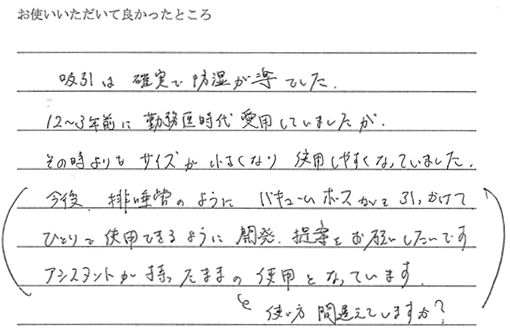 お使いいただいて良かったところ
吸引は 確実で 防湿が楽でした.
12〜3年前に 勤務医時代 愛用していましたが.
その時よりも サイズが 小さくなり 使用しやすくなっていました.
今後、排唾管のように バキュームホースがで 引っかけて
ひとりで 使用できるように 開発、提案をお願いしたいです
アシスタントが 持ったままの 使用となっています.
と 使い方 間違えていますか?